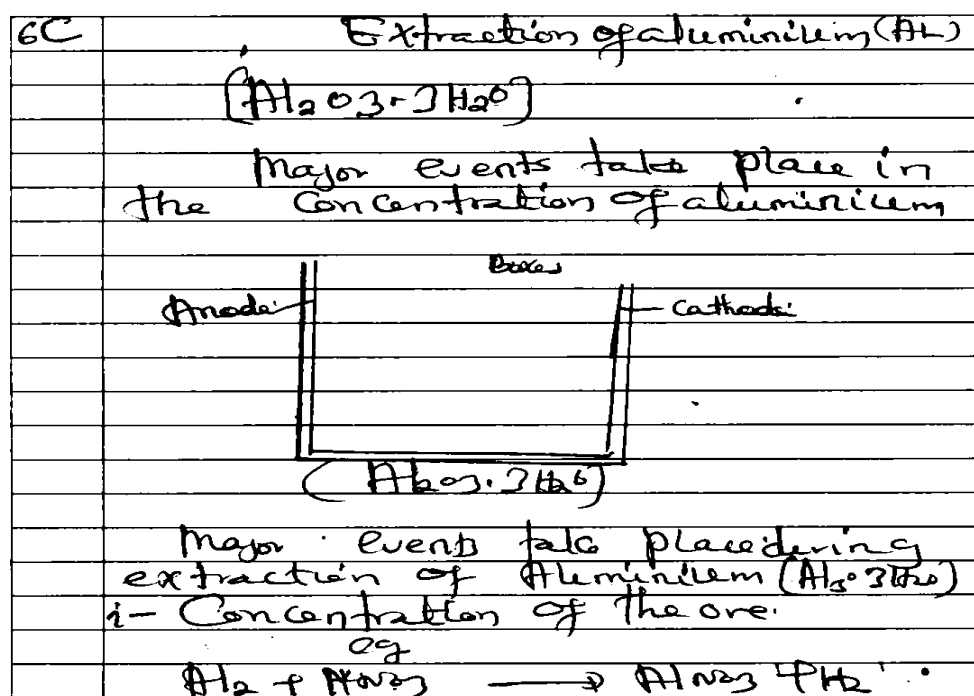 6C Extraction of aluminium (AL)
(Al2O3.3H2O)
Major events take place in
the Concentration of aluminium
Boxes
Anode Cathode
(Al2O3.3H2O)
Major events take place during
extraction of Aluminium (Al3O3H2O)
i- Concentration of the ore.
eg
Al2 + → AlNO3 + H2